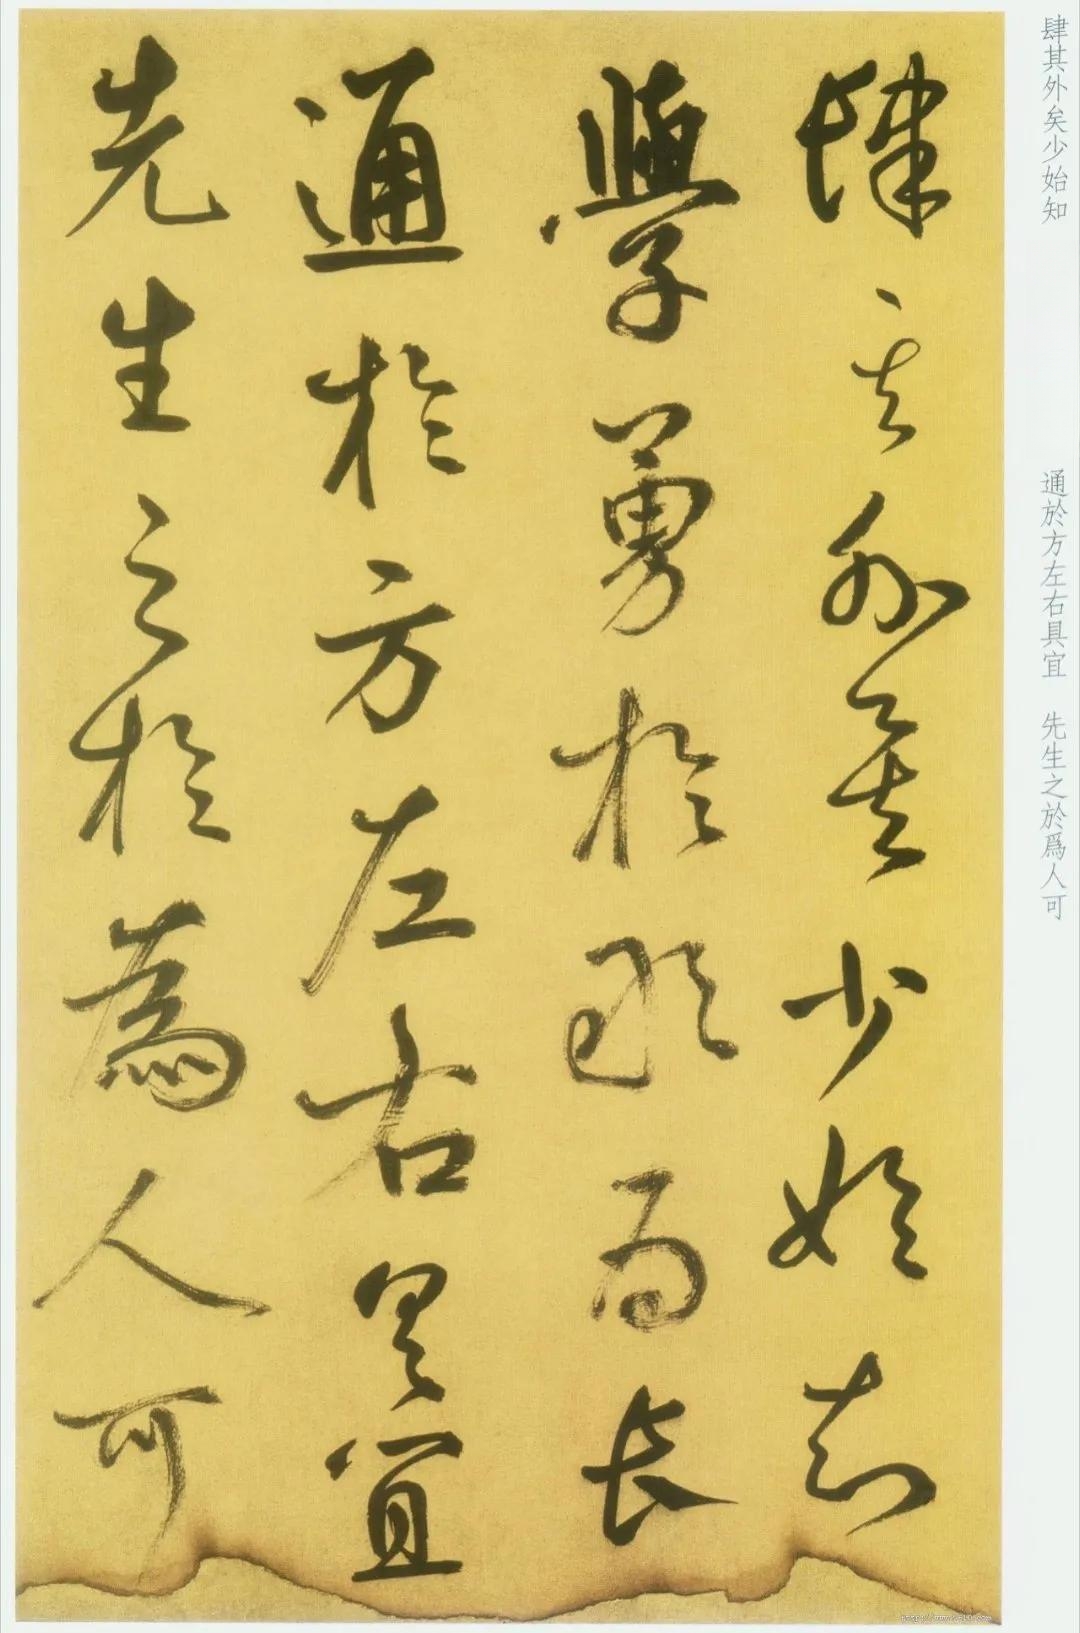 肆其外矣少始知
學勇於敢為長
通於方左右具宜
先生之於為人可
肆其外矣少始知
通於方左右具宜 先生之於爲人可